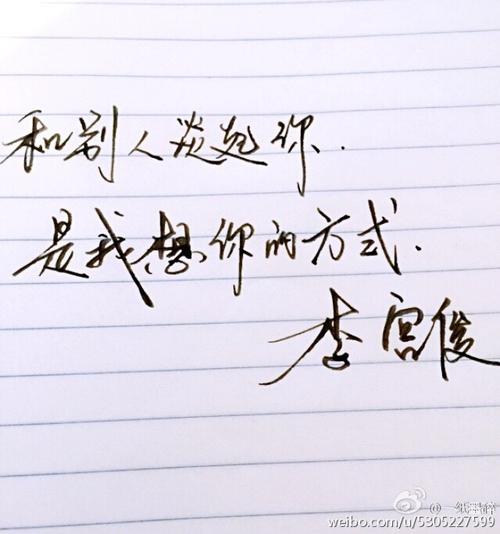 和别人谈起你.
是我想你的方式.
李宫俊
@一纸
weibo.com/u/5305227599